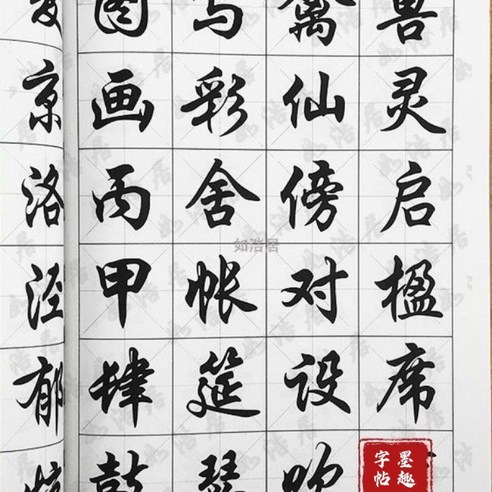 京
洛
泾
郁
图写禽兽
画彩仙灵
丙舍傍启
甲帐对楹
肆筵设席
鼓瑟吹
知浩居
墨趣
字帖